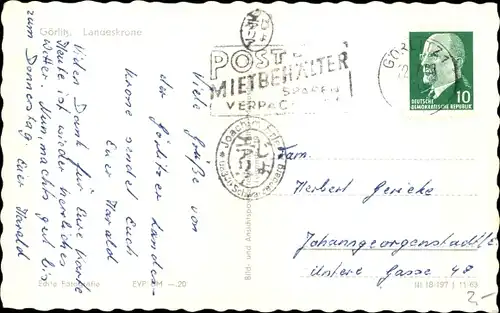 Görlitz, Landeskrone
Viele Grüße von
der Görlitzer Landes-
krone sendet Euch
Euer Harald
Vielen Dank für Eure Karte
Heute ist wieder herrliches
Wetter. Nun, machts gut bis
zum Donnerstag. Euer Harald
POST-
MIETBEHÄLTER
SPAREN
VERPAC
GÖRLITZ 1
DEUTSCHE
DEMOKRATISCHE REPUBLIK
10
Joachim
Fam.
Herbert Gericke
Johanngeorgenstadt
untere Gasse 48
Bild- und Ansichtspost
Echte Fotografie
EVP DM -.20
III-18-197 | 11-63
2,-